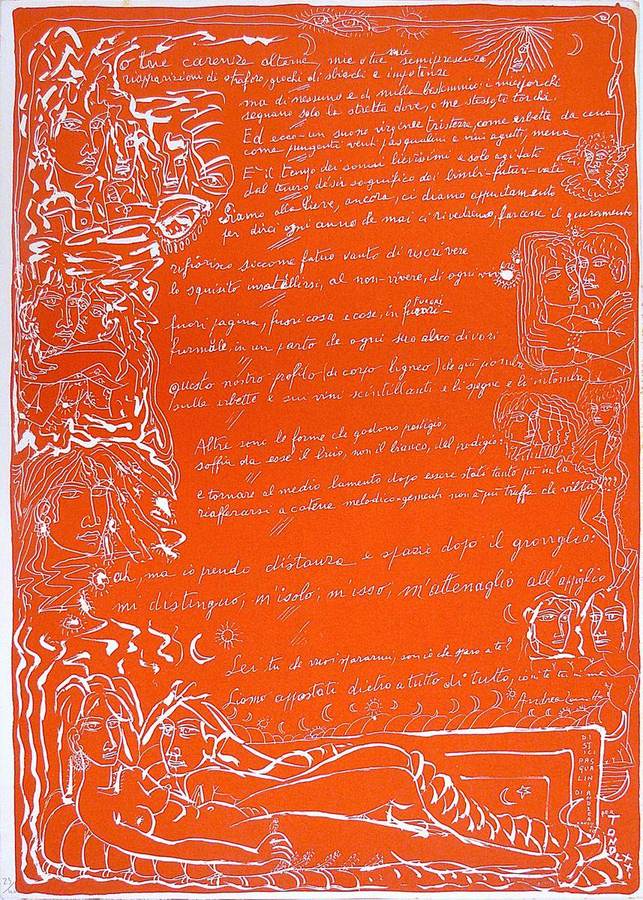 o tue carenze alterne, mie o tue mie semipresenze
riapparizioni di straforo, giochi di sbiechi e impotenze
ma di nessuno e di nulla besteminio: i miei forchi
segnano solo la stretta dove, o me stesso, te torchi.
Ed ecco un suono virginee tristezze, come erbette da cena
come pungenti venti pasqualini e vini agretti, mena
E' il tempo dei sonni lievissimi e solo agitati
dal tenero désir sognifico dei bimbi-futuri-vati
Siamo alla leve, ancora, ci diamo appuntamento
per dieci ogni anno de mai ci rivedremo, forcese il giuramento
rifiorisco siccome fatuo vanto di riscrivere
lo squisito insatellirsi, al non-vivere, di ogni
fuori pagina, fuori cosa e cose, in fuori
furmale, in un parto che ogni suo alvo divori
Questo nostro profilo (di corpo ligneo) che qui piomba
sulle erbette e sui vini scintillanti e li spegne e le intomba
Altre sono le forme che godono prestigio,
soffin da esse il buio, non il bianco, del prodigio:
e tornare al medio lamento dopo essere stati tanto più in là
riafferrarsi a catene melodico-gementi non è più truffa che viltà
ah, ma io prendo distanza e spazio dopo il groviglio:
mi distinguo, m'isolo, m'isso, m'attenaglio all'appiglio
Sei tu che vuoi spararmi, son io che sparo a te?
Siamo appostati dietro a tutto di tutto, con te
Andrea
DISTICI
PASQUALINI
DI
ANDREA
TONO